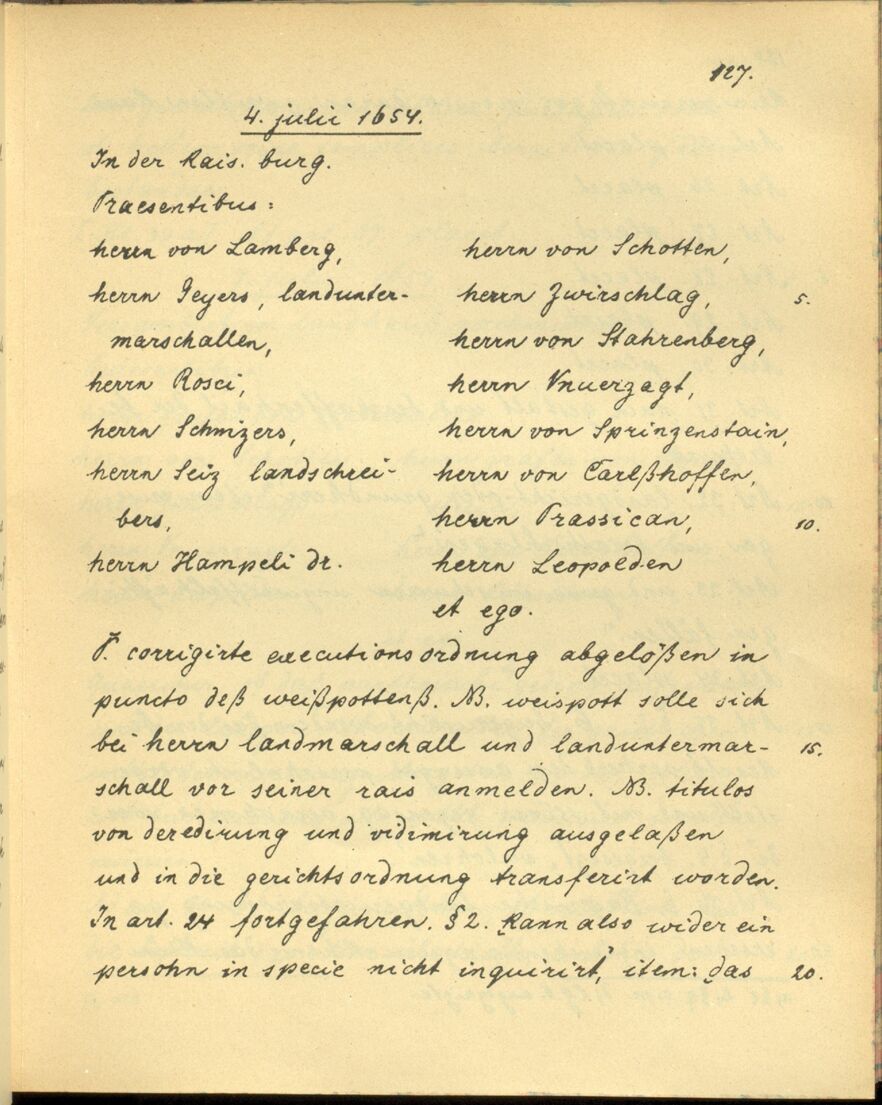 127.
4. julii 1654.
In der kais. burg.
Praesentibus:
herrn von Lamberg,
herrn Geyers, landunter-
marschallen,
herrn Rosci,
herrn Schmizers,
herrn Seiz landschrei-
bers,
herrn Hampeli dr.
herrn von Schotten,
herrn Zwirschlag, 5.
herrn von Stahrenberg,
herrn Vnuerzagt,
herrn von Sprinzenstain,
herrn von Carlßhoffen,
herrn Prassican, 10.
herrn Leopolden
et ego.
P. corrigirte executionsordnung abgelößen in
puncto deß weißpottenß. NB. weispott solle sich
bei herrn landmarschall und landuntermar- 15.
schall vor seiner rais anmelden. NB. titulos
von deredirung und vidimirung ausgelaßen
und in die gerichtsordnung transferirt worden.
In art. 24 fortgefahren. § 2. „Kann also wider ein
persohn in specie nicht inquirirt“, item: „das 20.